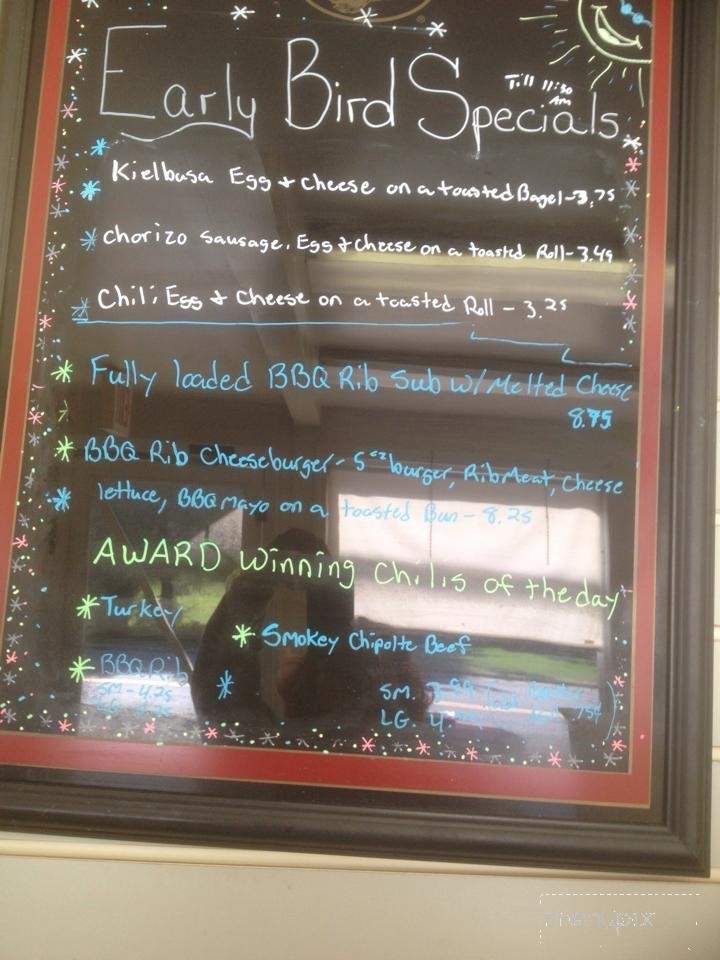 Early Bird Specials
Till 11:30
AM
Kielbasa Egg + Cheese on a toasted Bagel - 3.75
Chorizo Sausage, Egg + Cheese on a toasted Roll - 3.49
Chili Egg + Cheese on a toasted Roll - 3.25
Fully loaded BBQ Rib Sub W/ Melted Cheese
8.75
BBQ Rib Cheeseburger - 5 oz burger, Rib Meat, Cheese
lettuce, BBQ mayo on a toasted Bun - 8.25
AWARD Winning Chilis of the day
Turkey
Smokey Chipolte Beef
BBQ Rib
SM - 4.25
LG
SM. 3.99
LG. 4.